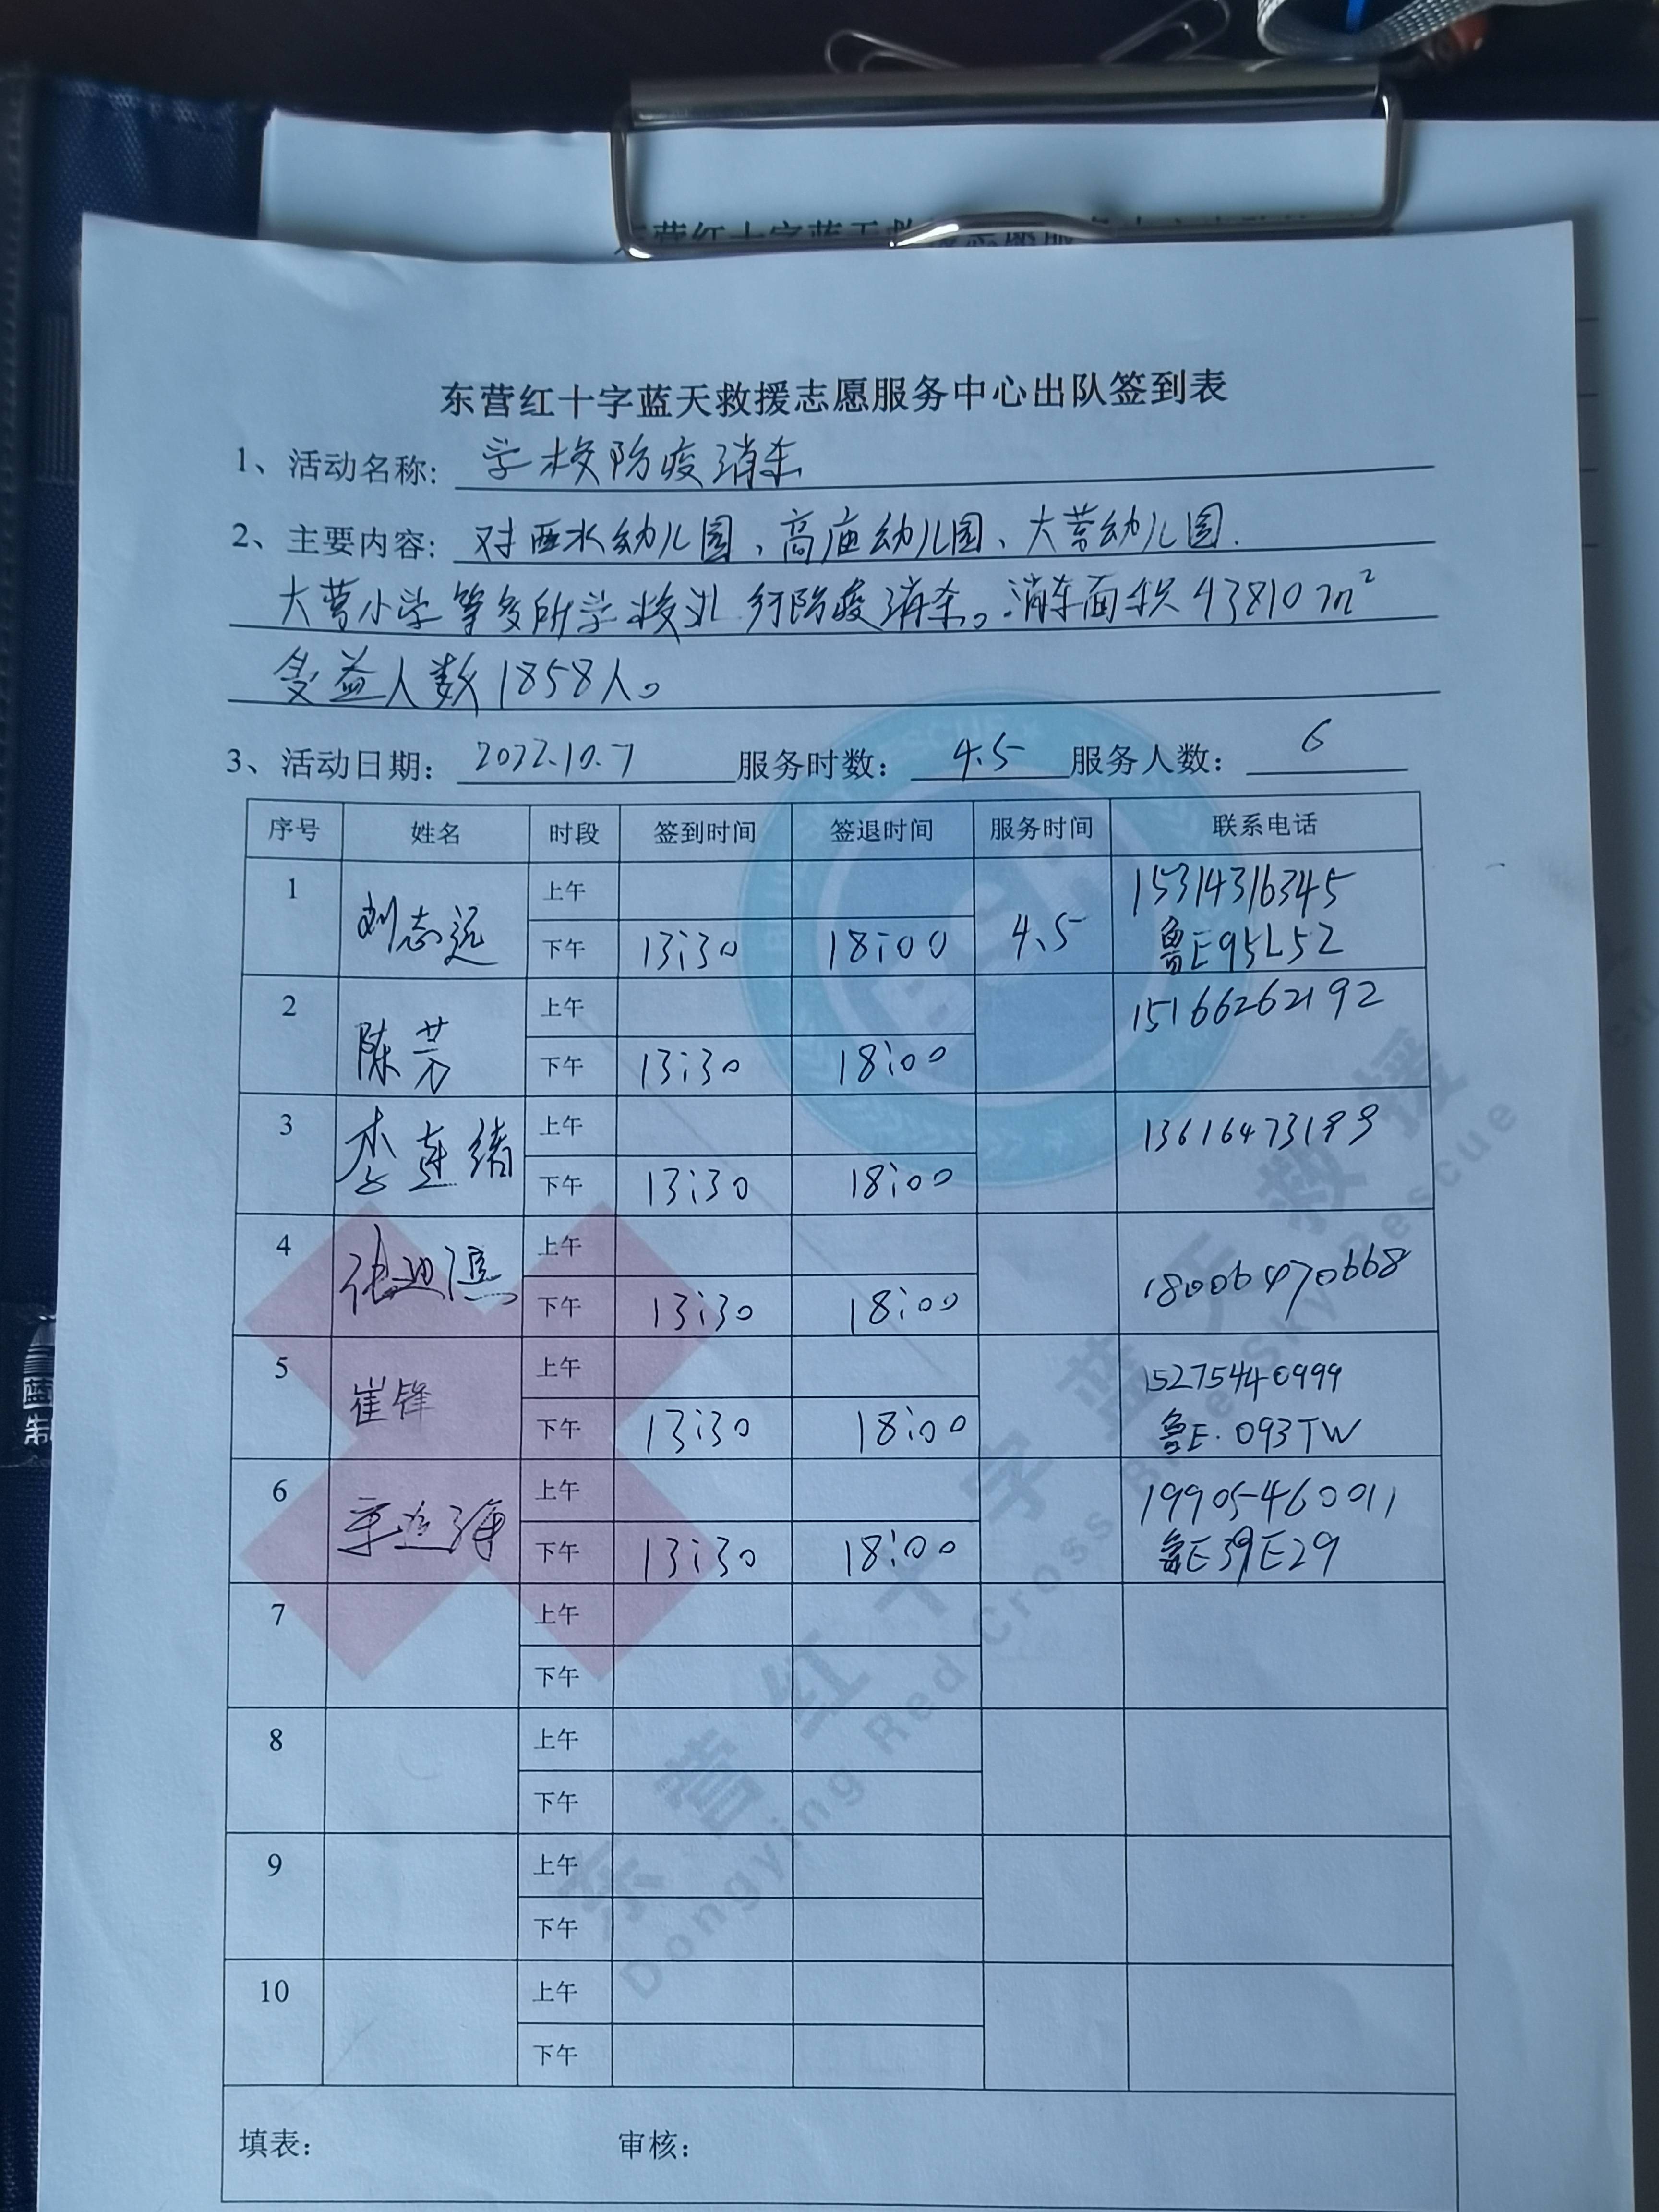 东营红十字蓝天救援志愿服务中心出队签到表
1、活动名称: 学校防疫消杀
2、主要内容: 对西水幼儿园、高庙幼儿园、大营幼儿园.
大营小学等多所学校进行防疫消杀。消杀面积43810m²
受益人数1858人。
3、活动日期: 2022.10.7 服务时数: 4.5 服务人数: 6
序号 姓名 时段 签到时间 签退时间 服务时间 联系电话
1 刘志远 上午 15314316345
下午 13:30 18:00 4.5 鲁E95L52
2 陈芳 上午 15166262192
下午 13:30 18:00
3 李连绪 上午 13616473199
下午 13:30 18:00
4 上午
下午 13:30 18:00 18006470668
5 崔锋 上午 15275440999
下午 13:30 18:00 鲁E·093TW
6 上午 19905460011
下午 13:30 18:00 鲁E39E29
7 上午
下午
8 上午
下午
9 上午
下午
10 上午
下午
填表: 审核:
东营红十字蓝天救援
Dongying Red Cross Blue Sky Rescue